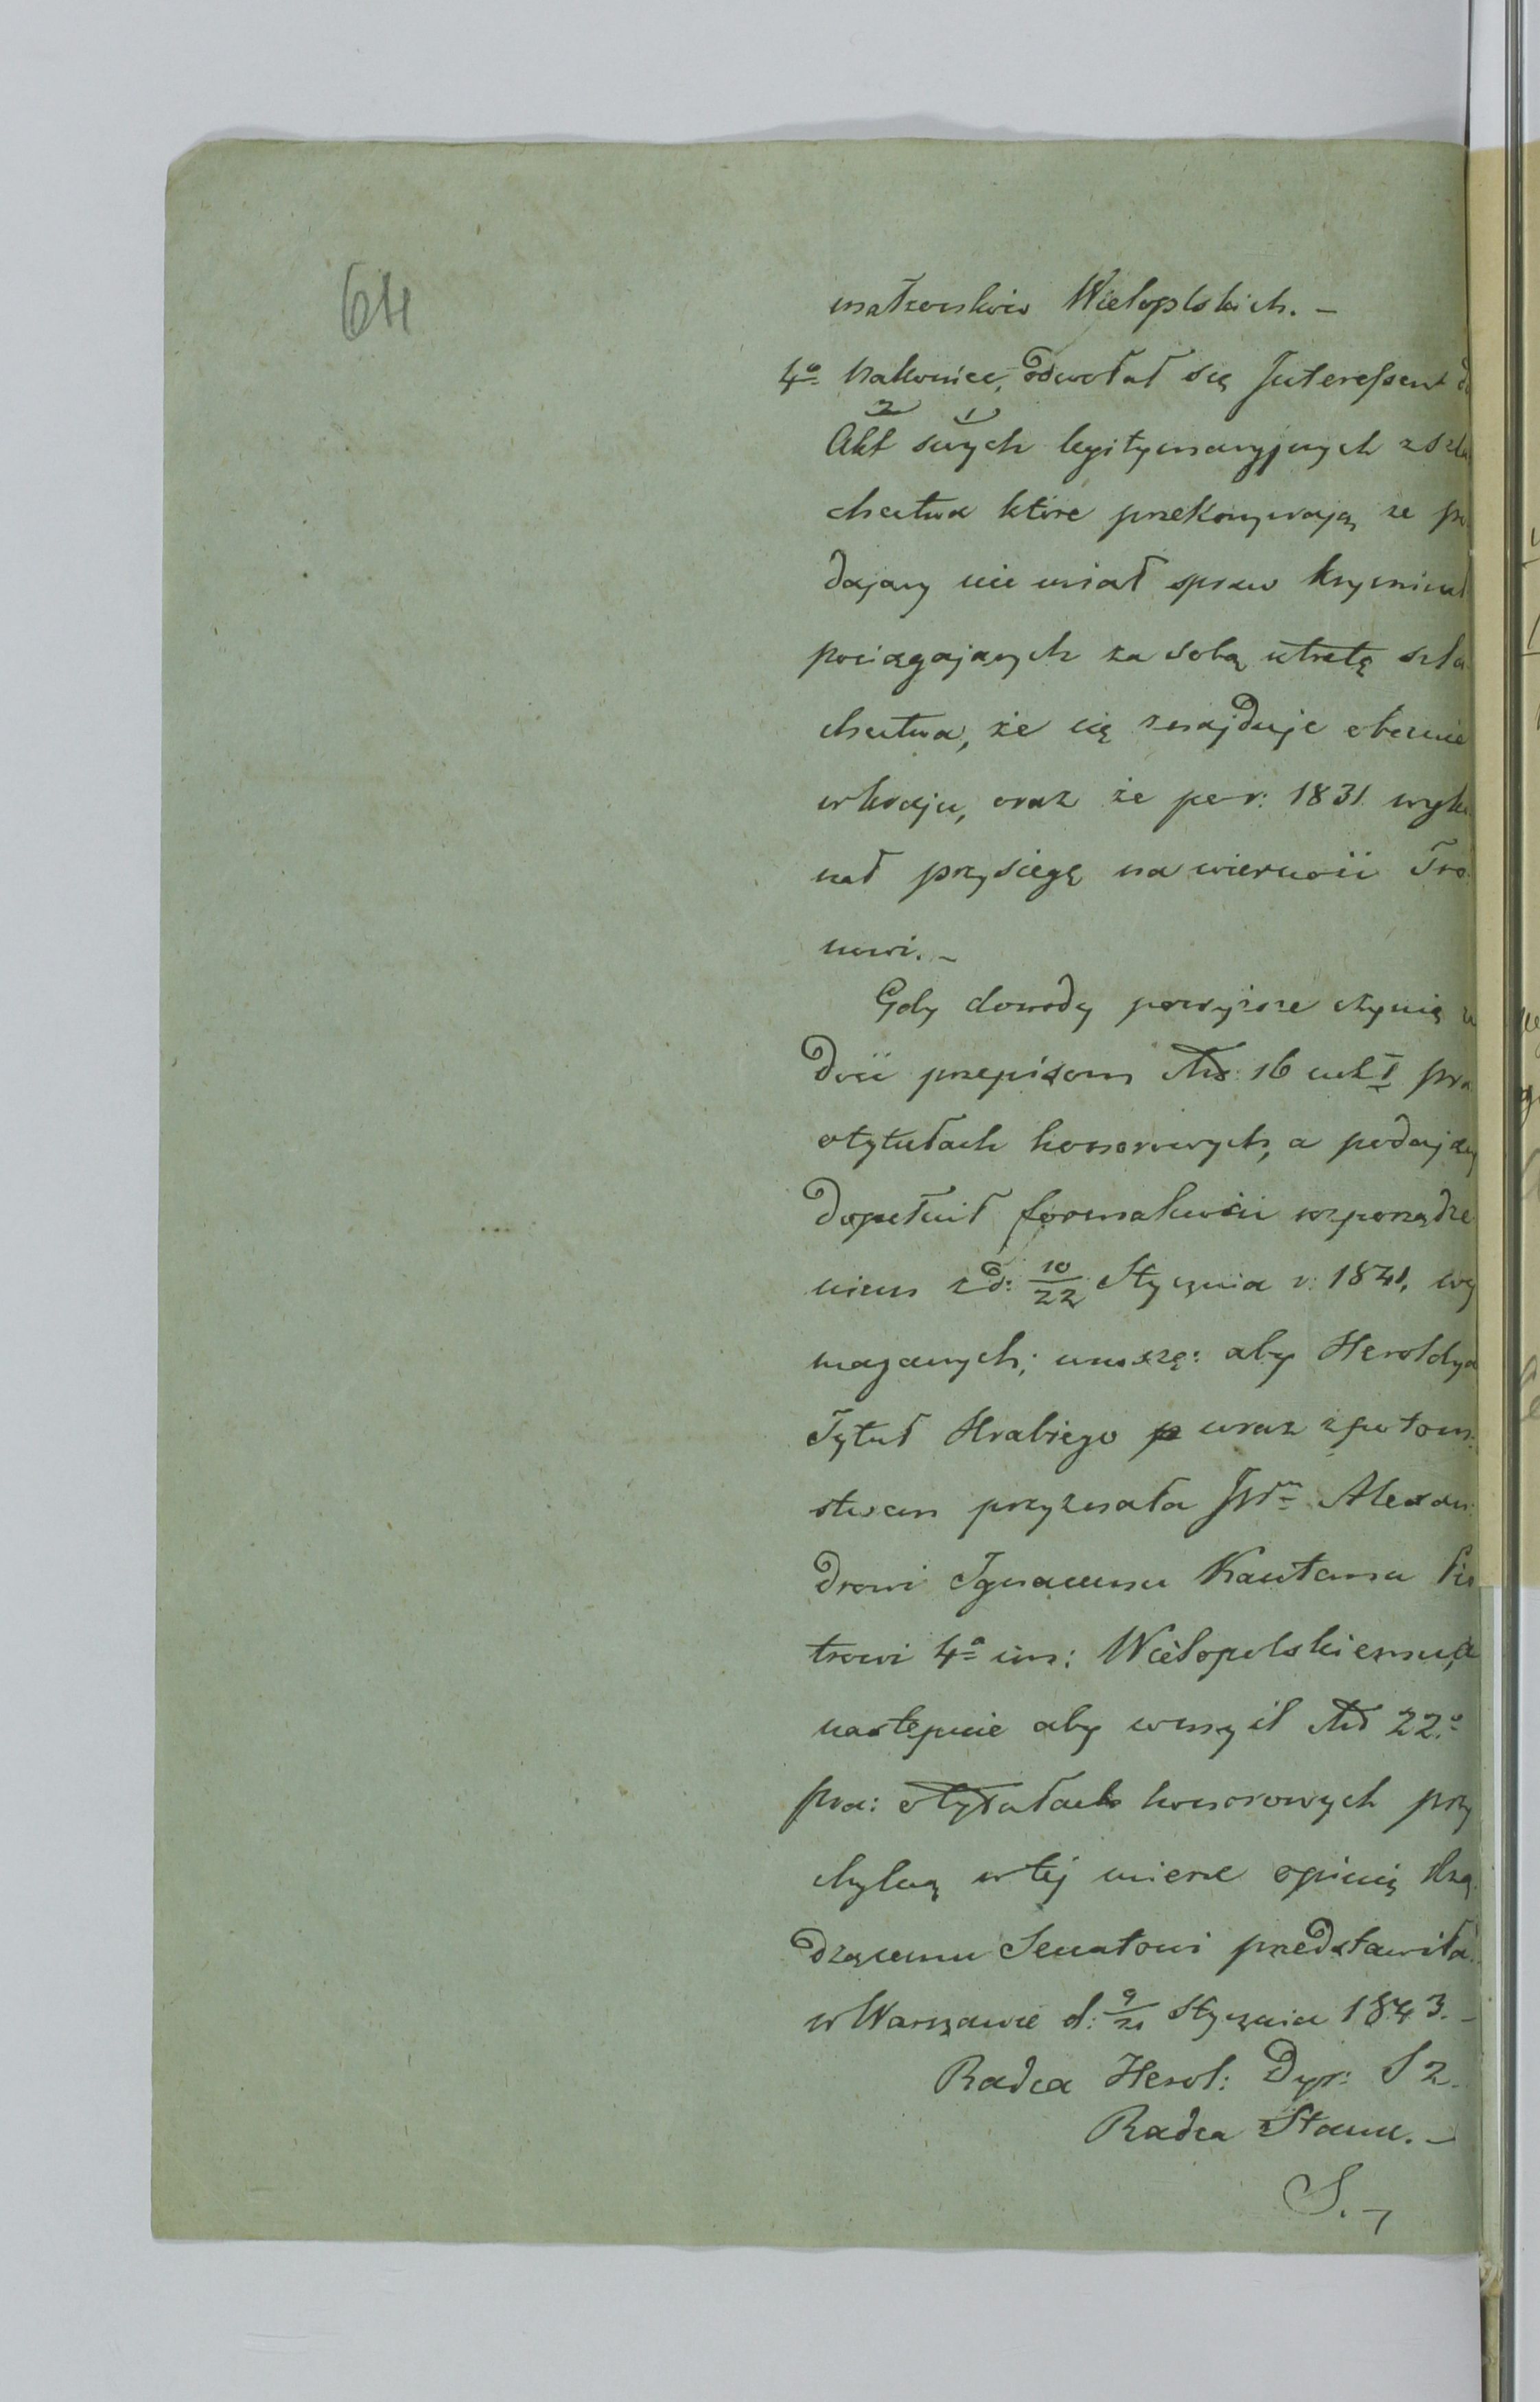 64
małżonków Wielopolskich. –
4º nakoniec, odwołał się Interessent d
2 1
Akt swych legitymacyjnych z szla
chectwa które przekonywają że po
dający nie miał spraw kryminal
pociągających za sobą utratę szla
chectwa, że się znajduje obecnie
w kraju, oraz że po r: 1831 wyko
nał przysięgę na wierność Tro
nowi. –
Gdy dowody powyższe czynią za
dość przepisom Art: 16 ust I pra
o tytułach honorowych, a podający
dopełnił formalności rozporządze
niem z d: 10/22 Stycznia r: 1841, wy
maganych; wnoszę: aby Heroldya
Tytuł Hrabiego wraz z potom:
stwem przyznała JWmu Alexan:
drowi Ignacemu Kajetanu Pio
trowi 4º im: Wielopolskiemu, a
następnie aby w myśl Art 22º
pra: o tytułach honorowych przy
chylną w tej mierze opinią Rzą
dzącemu Senatowi przedstawiła.
w Warszawie d: 9/21 Stycznia 1843. –
Radca Herol: Dyr: S 2.
Radca Stanu. –
S. –